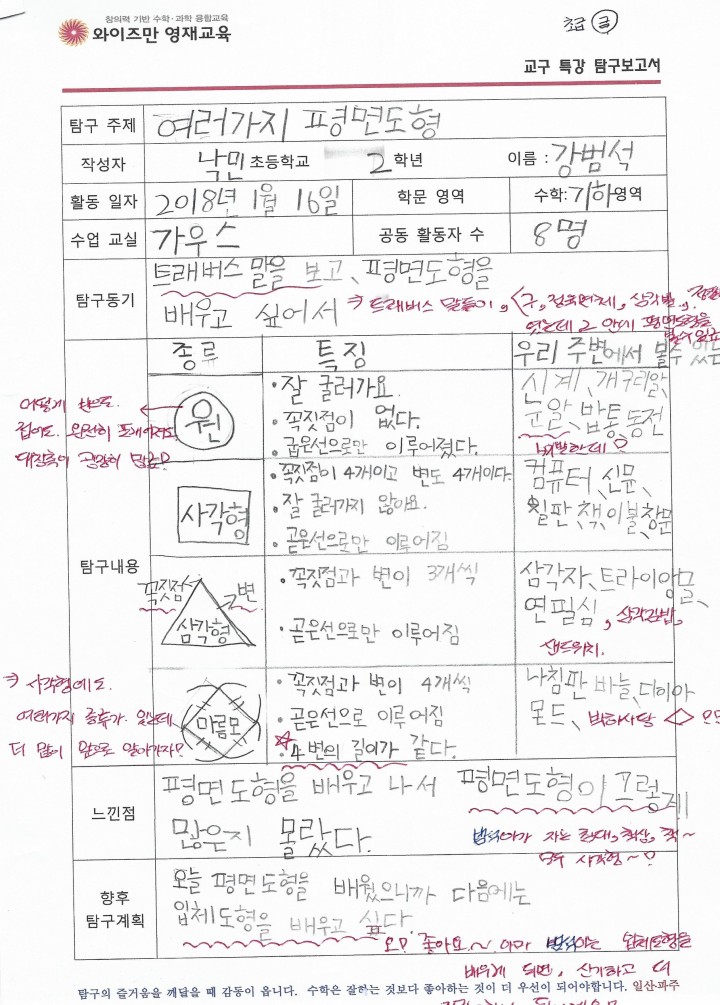 창의력 기반 수학·과학 융합교육
와이즈만 영재교육
초급 금
교구 특강 탐구보고서
탐구 주제 여러가지 평면도형
작성자 낙민초등학교 2학년 이름 : 강범석
활동 일자 2018년 1월 16일 학문 영역 수학:기하영역
수업 교실 가우스 공동 활동자 수 8명
탐구동기
트래버스 말을 보고, 평면도형을
배우고 싶어서
→ 트래버스 말들이,
구, 정육면체, 삼각뿔,
였는데 그 안에 평면도형을
볼수있
탐구내용
종류 특징 우리 주변에서 볼수 있
원
• 잘 굴러가요.
• 꼭짓점이 없다.
• 굽은선으로만 이루어졌다.
시계, 개구리알,
눈알, 밥통, 동전
어떻게 반으로
접어도 완전히
대칭축이 굉장히 많군?
사각형
• 꼭짓점이 4개이고 변도 4개이다.
• 잘 굴러가지 않아요.
• 곧은선으로만 이루어짐
컴퓨터, 신문,
칠판, 책, 이불, 창문
꼭짓점 변
삼각형
• 꼭짓점과 변이 3개씩
• 곧은선으로만 이루어짐
삼각자, 트라이앵글,
연필심, 삼각김밥,
샌드위치.
마름모
• 꼭짓점과 변이 4개씩
• 곧은선으로 이루어짐
• 4변의 길이가 같다.
나침판 바늘, 다이아
몬드, 박하사탕
→ 사각형에도
여러가지 종류가 있는데
더 많이 앞으로 알아가자!
느낀점
평면도형을 배우고 나서 평면도형이 그렇게
많은지 몰랐다.
범석이가 자는 침대, 책상, 책~
모두 사각형~!
향후
탐구계획
오늘 평면도형을 배웠으니까 다음에는
입체도형을 배우고 싶다.
오! 좋아요~ 아마 범석이는 입체도형을
배우게 되면, 신기하고 더
탐구의 즐거움을 깨달을 때 감동이 옵니다. 수학은 잘하는 것보다 좋아하는 것이 더 우선이 되어야합니다. 일산파주